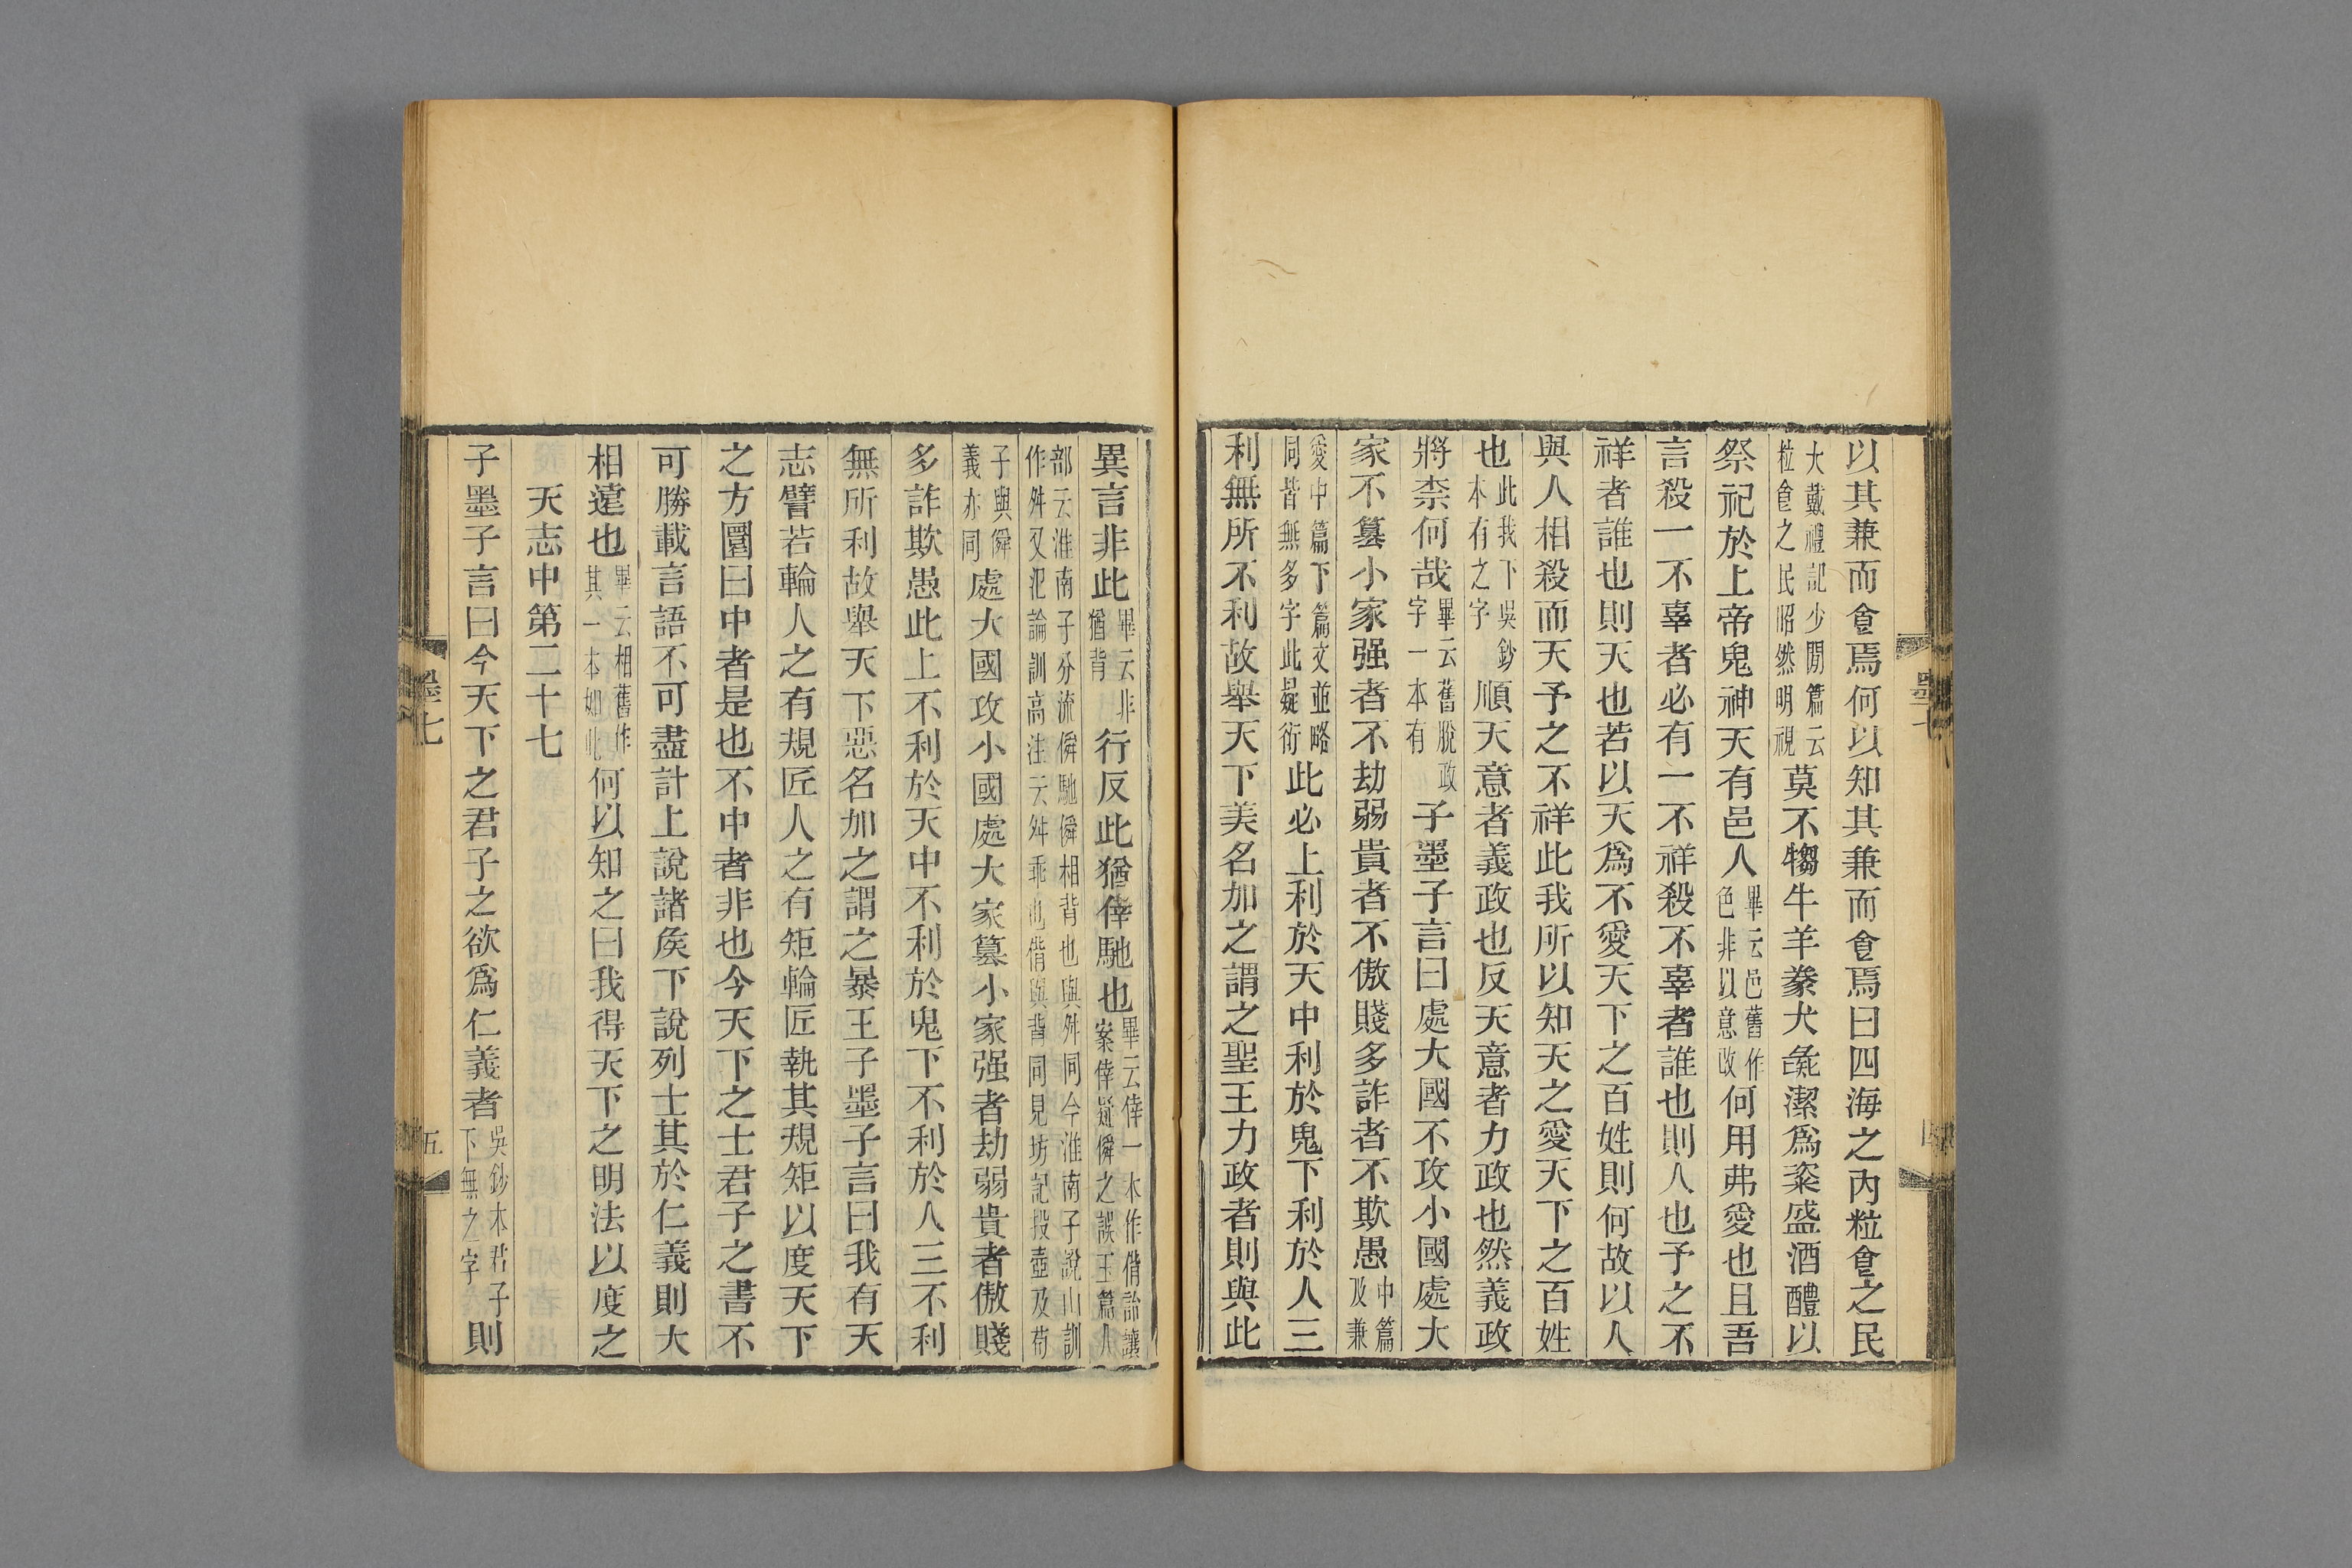 以其兼而食焉何以知其兼而食焉曰四海之內粒食之民
大戴禮記少閒篇云粒食之民昭然明視莫不犓牛羊豢犬彘潔爲粢盛酒醴以
祭祀於上帝鬼神天有邑人畢云邑舊作色非以意改何用弗愛也且吾
言殺一不辜者必有一不祥殺不辜者誰也則人也予之不
祥者誰也則天也若以天爲不愛天下之百姓則何故以人
與人相殺而天予之不祥此我所以知天之愛天下之百姓
也此我下吳鈔本有之字順天意者義政也反天意者力政也然義政
將柰何哉畢云舊脫政字一本有子墨子言曰處大國不攻小國處大
家不篡小家强者不劫弱貴者不傲賤多詐者不欺愚中篇及兼
愛中篇下篇文並略同皆無多字此疑衍此必上利於天中利於鬼下利於人三
利無所不利故舉天下美名加之謂之聖王力政者則與此
墨七
四
異言非此畢云非猶背行反此猶倖馳也畢云倖一本作偝詒讓案倖疑僢之誤玉篇人
部云淮南子分流僢馳僢相背也與舛同今淮南子說山訓作舛又氾論訓高注云舛乖也偝與背同見坊記投壺及荀
子與僢義亦同處大國攻小國處大家篡小家强者劫弱貴者傲賤
多詐欺愚此上不利於天中不利於鬼下不利於人三不利
無所利故舉天下惡名加之謂之暴王子墨子言曰我有天
志譬若輪人之有規匠人之有矩輪匠執其規矩以度天下
之方圜曰中者是也不中者非也今天下之士君子之書不
可勝載言語不可盡計上說諸矦下說列士其於仁義則大
相遠也畢云相舊作其一本如此何以知之曰我得天下之明法以度之
天志中第二十七
子墨子言曰今天下之君子之欲爲仁義者吳鈔本君子下無之字則
墨七
五